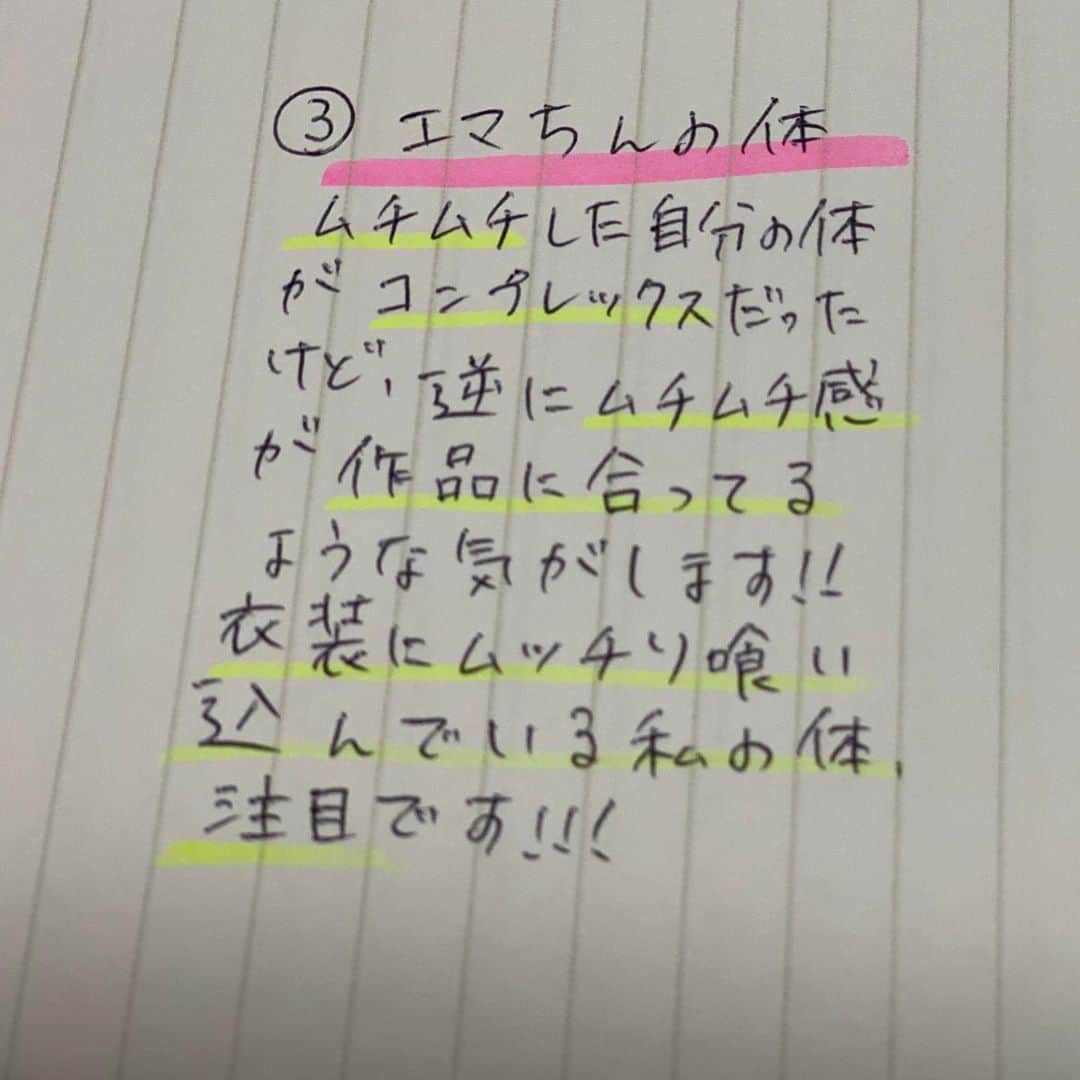 ③ エマちんの体
ムチムチした自分の体
がコンプレックスだった
けど、逆にムチムチ感
が作品に合ってる
ような気がします!!
衣装にムッチリ喰い
込んでいる私の体、
注目です!!!